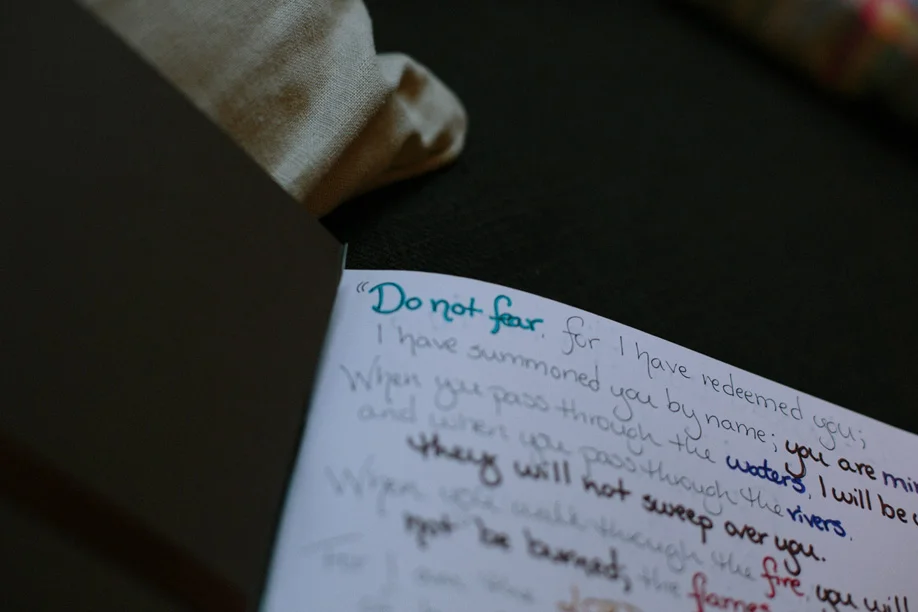 “Do not fear, for I have redeemed you;
I have summoned you by name; you are min
When you pass through the waters, I will be w
and when you pass through the rivers,
they will not sweep over you.
When you walk through the fire, you will
not be burned; the flames
For I am the